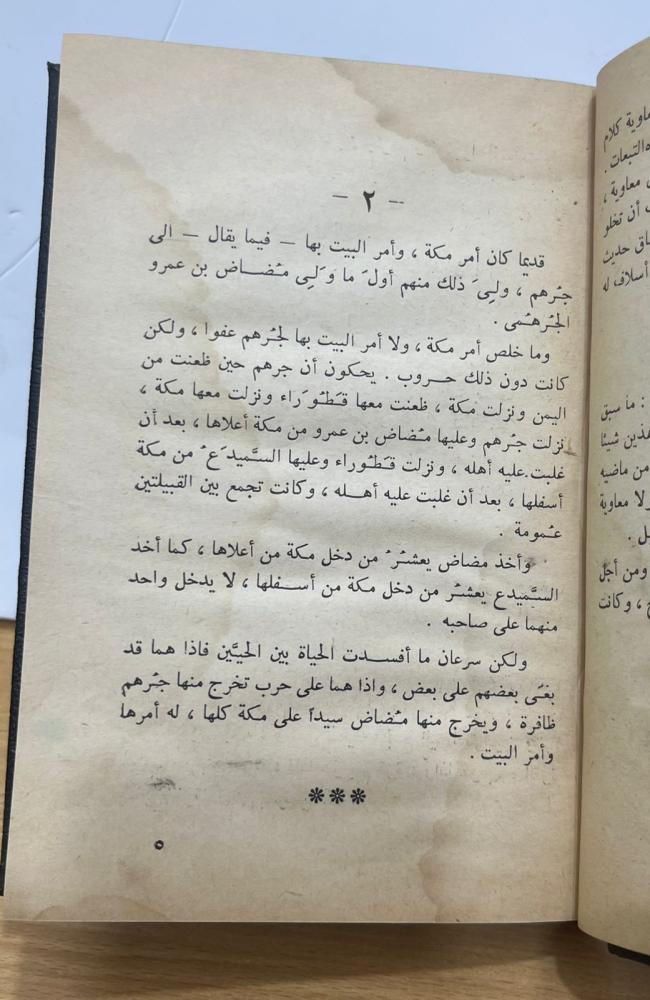 — ٢ —
قديما كان أمر مكة ، وأمر البيت بها — فيما يقال — الى
جُرهم ، ولِيَ ذلك منهم أولَ ما وَلِي مُضاض بن عمرو
الجُرهُمى .
وما خلص أمر مكة ، ولا أمر البيت بها لجُرهم عفوا ، ولكن
كانت دون ذلك حروب . يحكون أن جرهم حين ظعنت من
اليمن ونزلت مكة ، ظعنت معها قَطُورَاء ونزلت معها مكة ،
نزلت جُرهم وعليها مُضاض بن عمرو من مكة أعلاها ، بعد أن
غلبت عليه أهله ، ونزلت قَطُوراء وعليها السَّميدَعُ من مكة
أسفلها ، بعد أن غلبت عليه أهله ، وكانت تجمع بين القبيلتين
عُمومة .
وأخذ مضاض يعشُرُ من دخل مكة من أعلاها ، كما أخد
السَّميدع يعشُر من دخل مكة من أسفلها ، لا يدخل واحد
منهما على صاحبه .
ولكن سرعان ما أفسدت الحياة بين الحيَّين فاذا هما قد
بغَى بعضهم على بعض ، واذا هما على حرب تخرج منها جُرهم
ظافرة ، ويخرج منها مُضاض سيداً على مكة كلها ، له أمرها
وأمر البيت .
***
٥
معاوية كلام
التبعات .
معاوية ،
أن تخلو
حديث
أسلاف، له
: ما سبق
هذين شيئا
من ماضيه
لا معاوية
ومن أجل
، وكانت